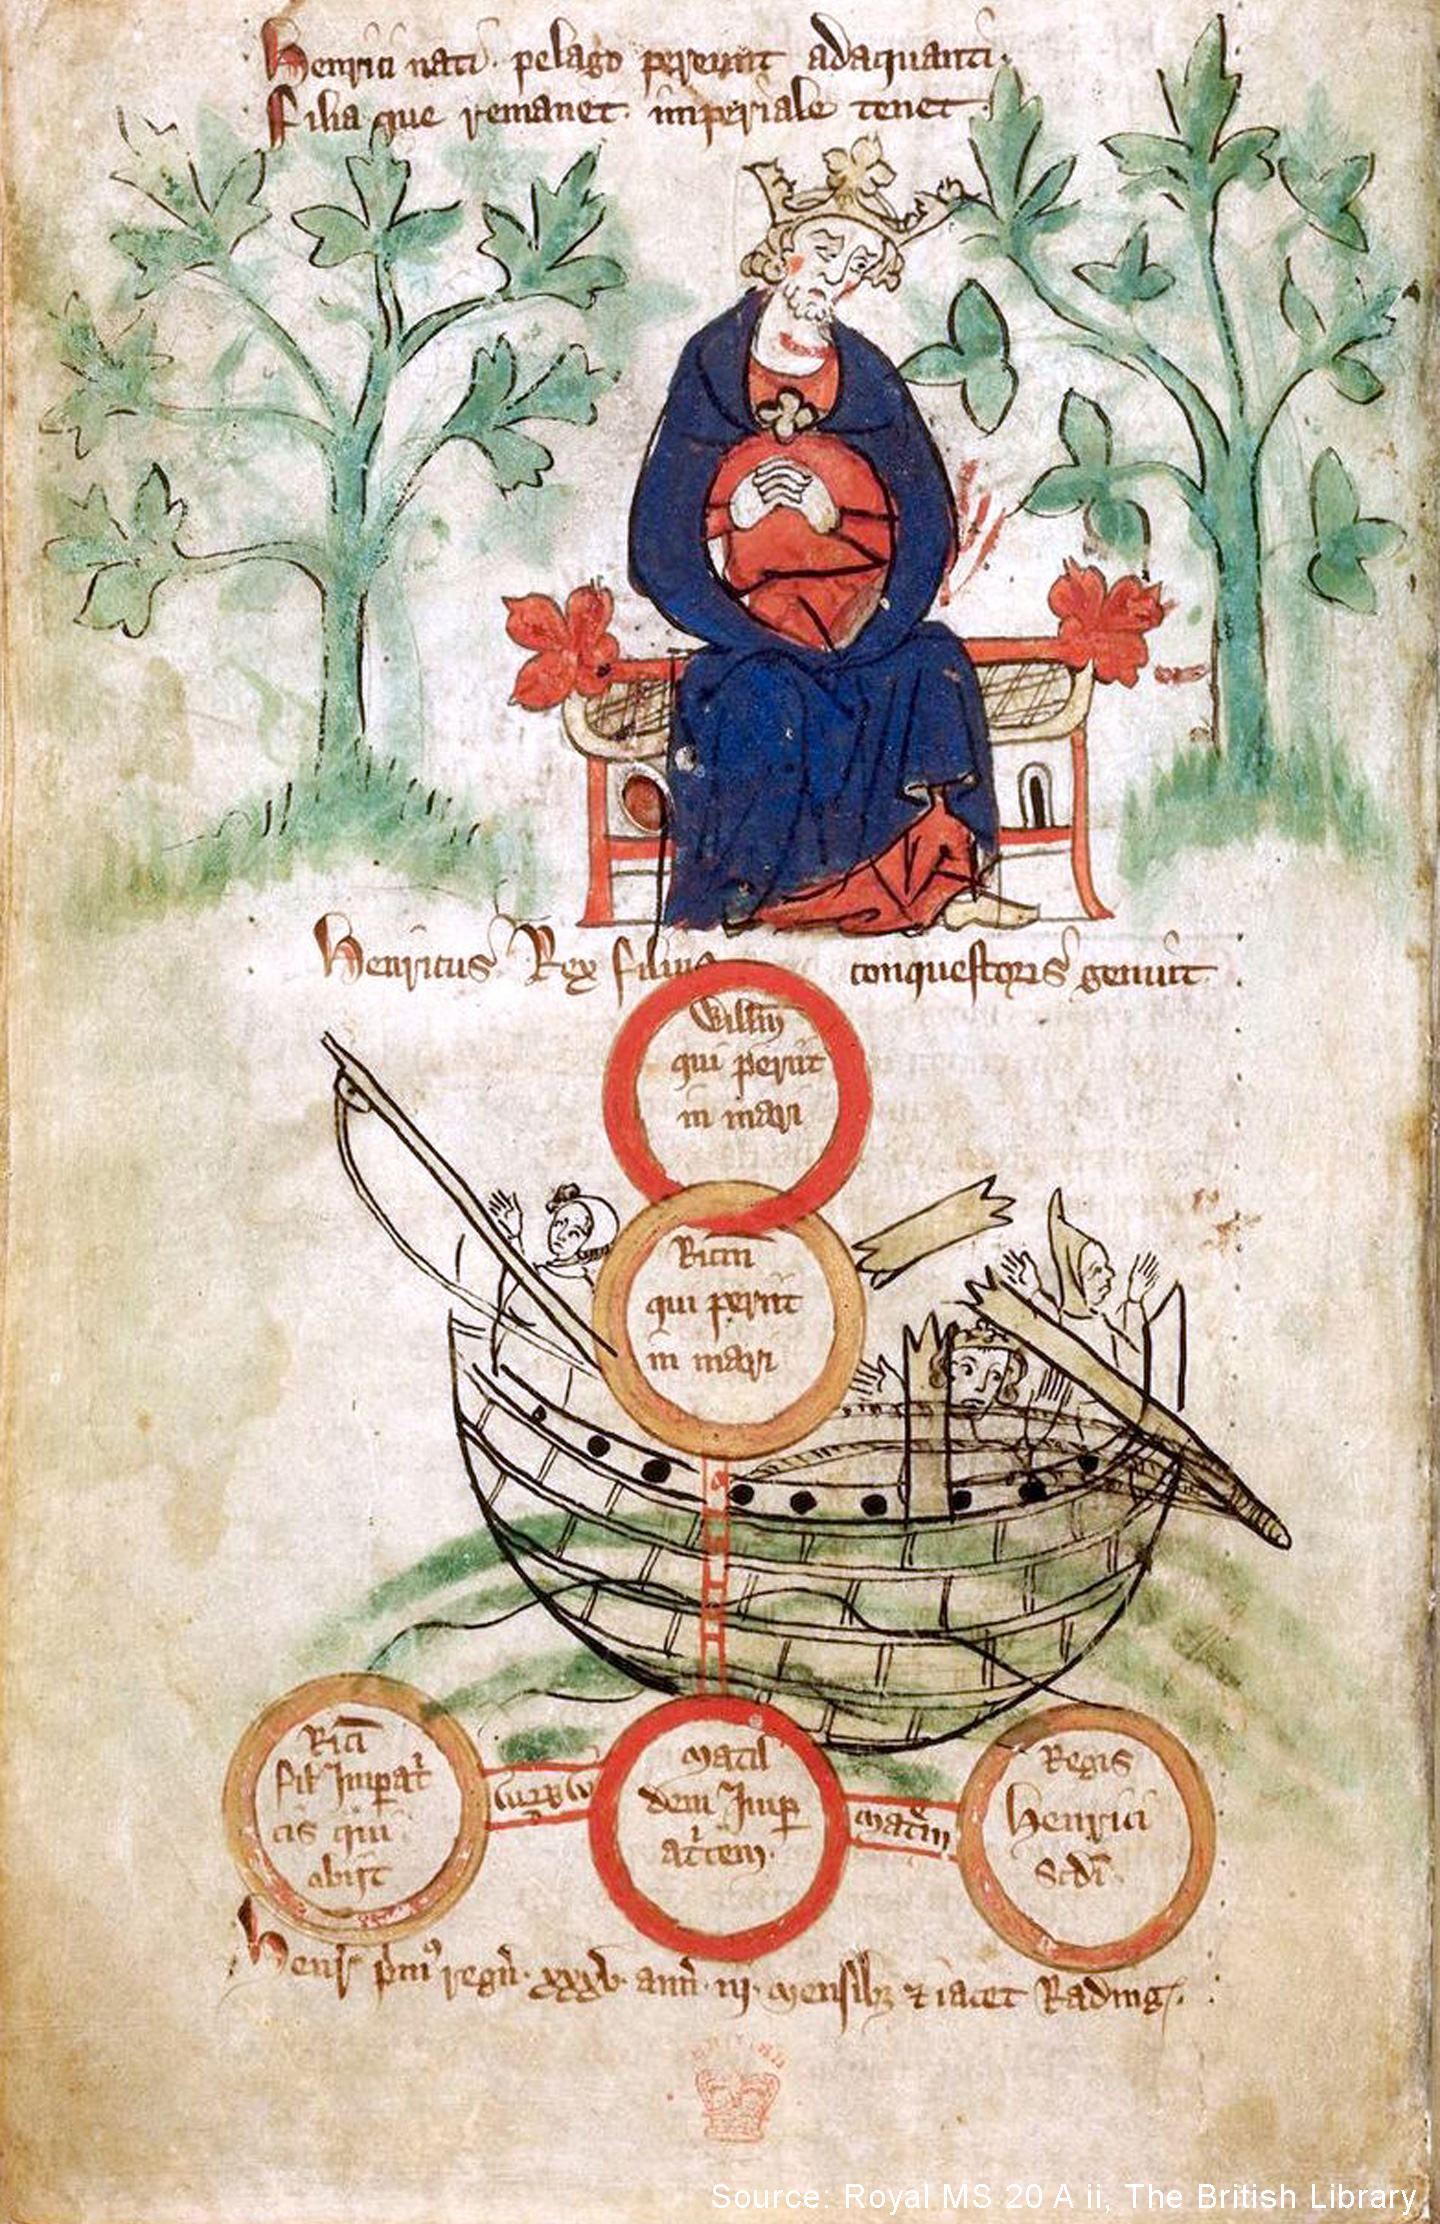 Henrici nati · pelago pereunt adaquanti ·
Filia que remanet · imperiale tenet ·
Henricus Rex filius conquestoris genuit
Willm
qui periit
in mari
Ricm
qui periit
in mari
Rici
filꝰ Imperat
cis qui
obiit
Matil
dem Imp
atcem ·
matrem
Regis
Henrici
Scdi ·
Henr pm regn · xxxv · ann · iij · mensibꝫ ⁊ iacet Rading ·
Source: Royal MS 20 A ii, The British Library